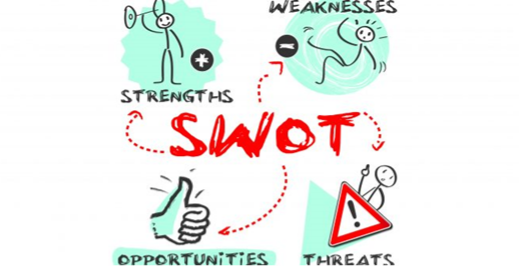 WEAKNESSES
STRENGTHS
SWOT
OPPORTUNITIES
THREATS